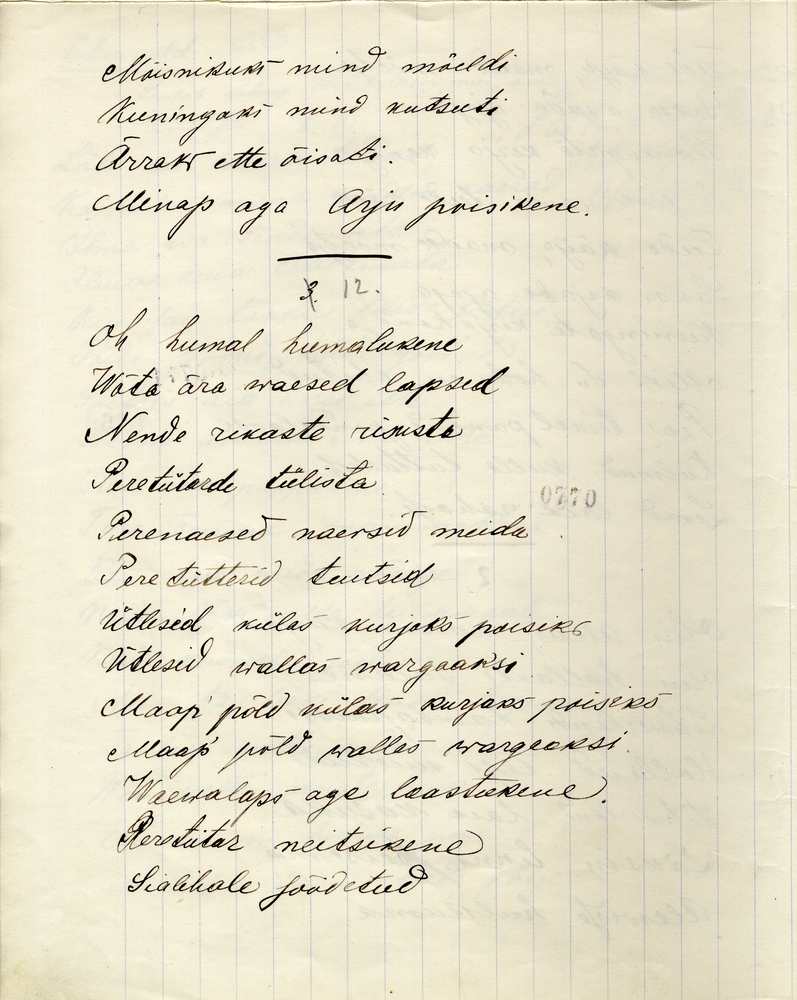 Mõisnikuks mind mõeldi
Kuningaks mind kutsuti
Ärraks ette õisati.
Minap aga Arju poisikene.
3. 12.
Oh humal humalukene
Wõta ära waesed lapsed
Nende rikaste riisusta
Peretütarde tülista
0770
Perenaesed naersid meida
Peretütterid teutsid
Ütlesid külas kurjaks poisiks
Ütlesid wallas wargaaksi
Maap põld külas kurjaks poisiks
Maap põld wallas wargaaksi.
Waewalaps aga laastukene.
Peretütar neitsikene
Sialihale söödetud